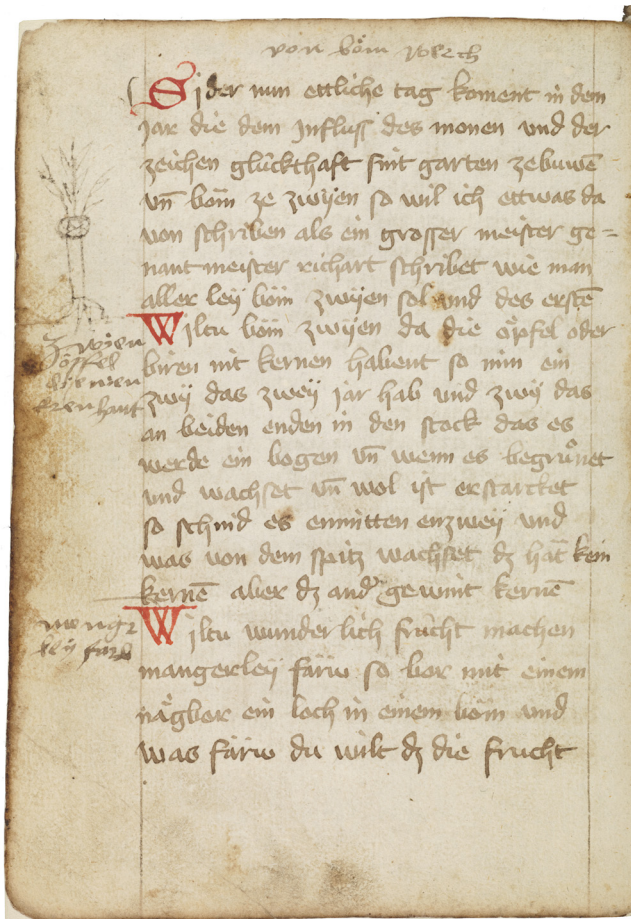 von böm
Sider nun ettliche tag koment in dem
jar die dem Influss des monen und der
zeichen glückhafft sint garten zebuwē
vn̄ böm ze zwijen so wil ich ettwas da
von schriben als ein grosser meister ge=
nant meister richart schribet wie man
aller leÿ böm zwÿen sol und des erstē
Wiltu böm zwÿen da die öpfel oder
biren nit kernen habent so nim ein
zwÿ das zweÿ jar hab und zwÿ das
an beiden enden in den stock das es
werde ein bogen vn̄ wenn es begrůnet
und wachset vn̄ wol ist erstarcket
so schnid es enmitten enzweÿ und
was von dem spitz wachset dz hāt kein
kernē aber dz and' gewint kernē
Wiltu wunderlich frücht machen
mangerleÿ färw so bor mit einem
nägbor ein loch in einem böm und
was färw du wilt dz die frucht
zwÿen
öpffel
kernen
hant
menger
leÿ farb